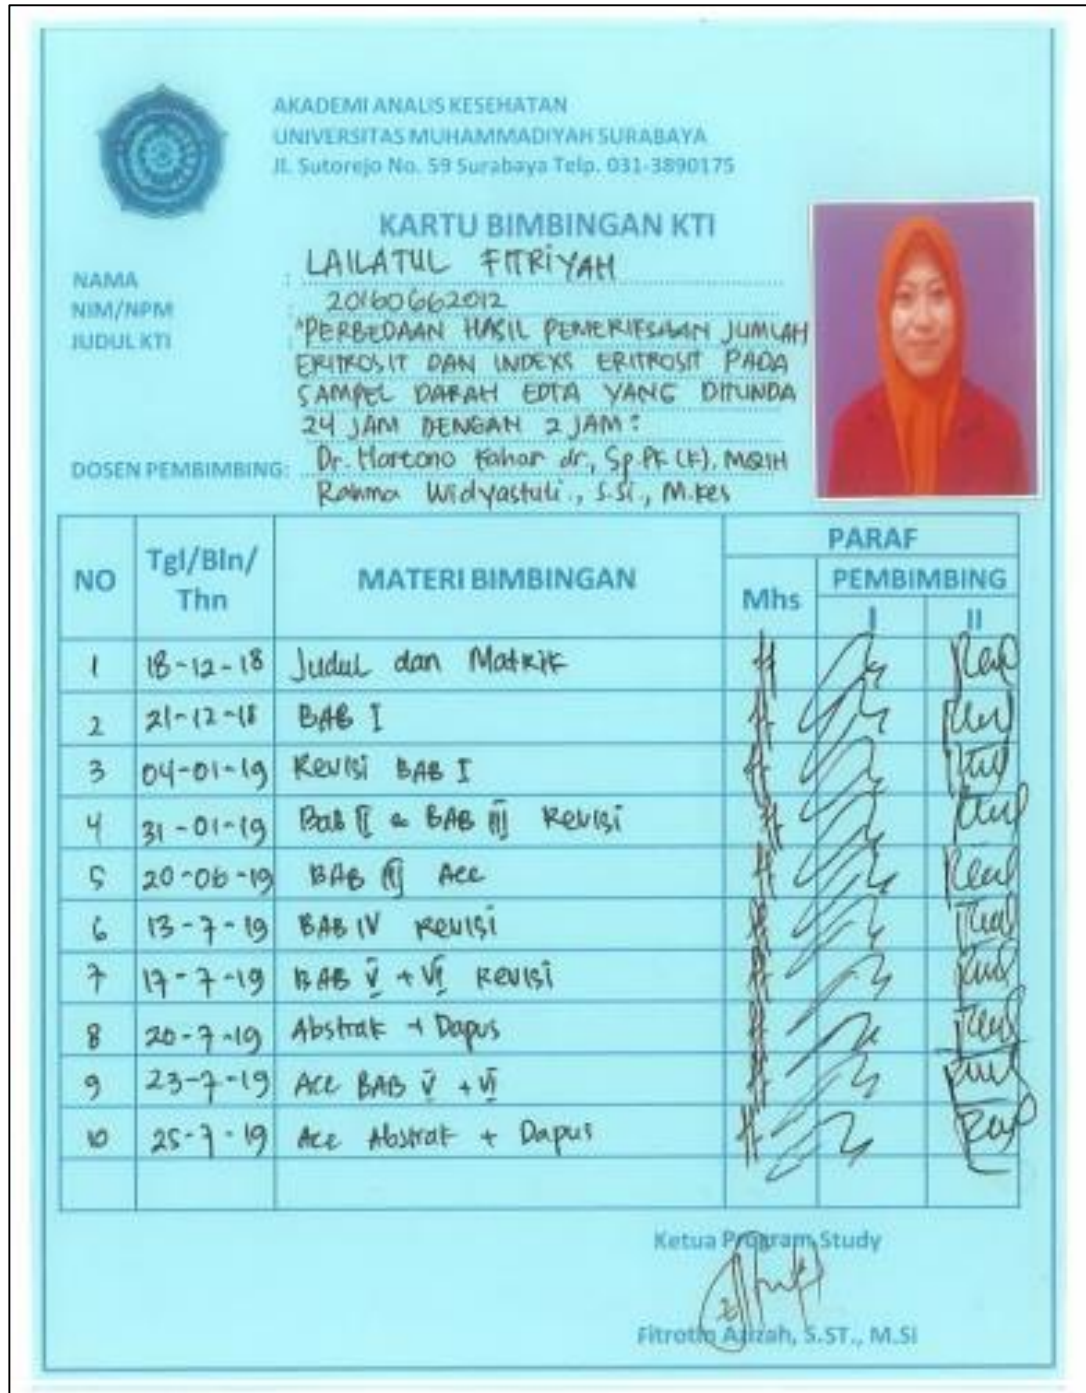 AKADEMI ANALIS KESEHATAN
UNIVERSITAS MUHAMMADIYAH SURABAYA
Jl. Sutorejo No. 59 Surabaya Telp. 031-3890175
KARTU BIMBINGAN KTI
NAMA : LAILATUL FITRIYAH
NIM/NPM : 20160662012
JUDUL KTI : "PERBEDAAN HASIL PEMERIKSAAN JUMLAH
ERITROSIT DAN INDEKS ERITROSIT PADA
SAMPEL DARAH EDTA YANG DITUNDA
24 JAM DENGAN 2 JAM"
DOSEN PEMBIMBING: Dr. Hartono Kahar dr., Sp.PK (K), MQIH
Rahma Widyastuti., S.Si., M.Kes
NO Tgl/Bln/Thn MATERI BIMBINGAN PARAF
Mhs PEMBIMBING
I II
1 18-12-18 Judul dan Matrik
2 21-12-18 BAB I
3 04-01-19 Revisi BAB I
4 31-01-19 Bab II & BAB III Revisi
5 20-06-19 BAB III Acc
6 13-7-19 BAB IV Revisi
7 17-7-19 BAB V + VI Revisi
8 20-7-19 Abstrak + Dapus
9 23-7-19 Acc BAB V + VI
10 25-7-19 Acc Abstrak + Dapus
Ketua Program Study
Fitrotin Azizah, S.ST., M.Si